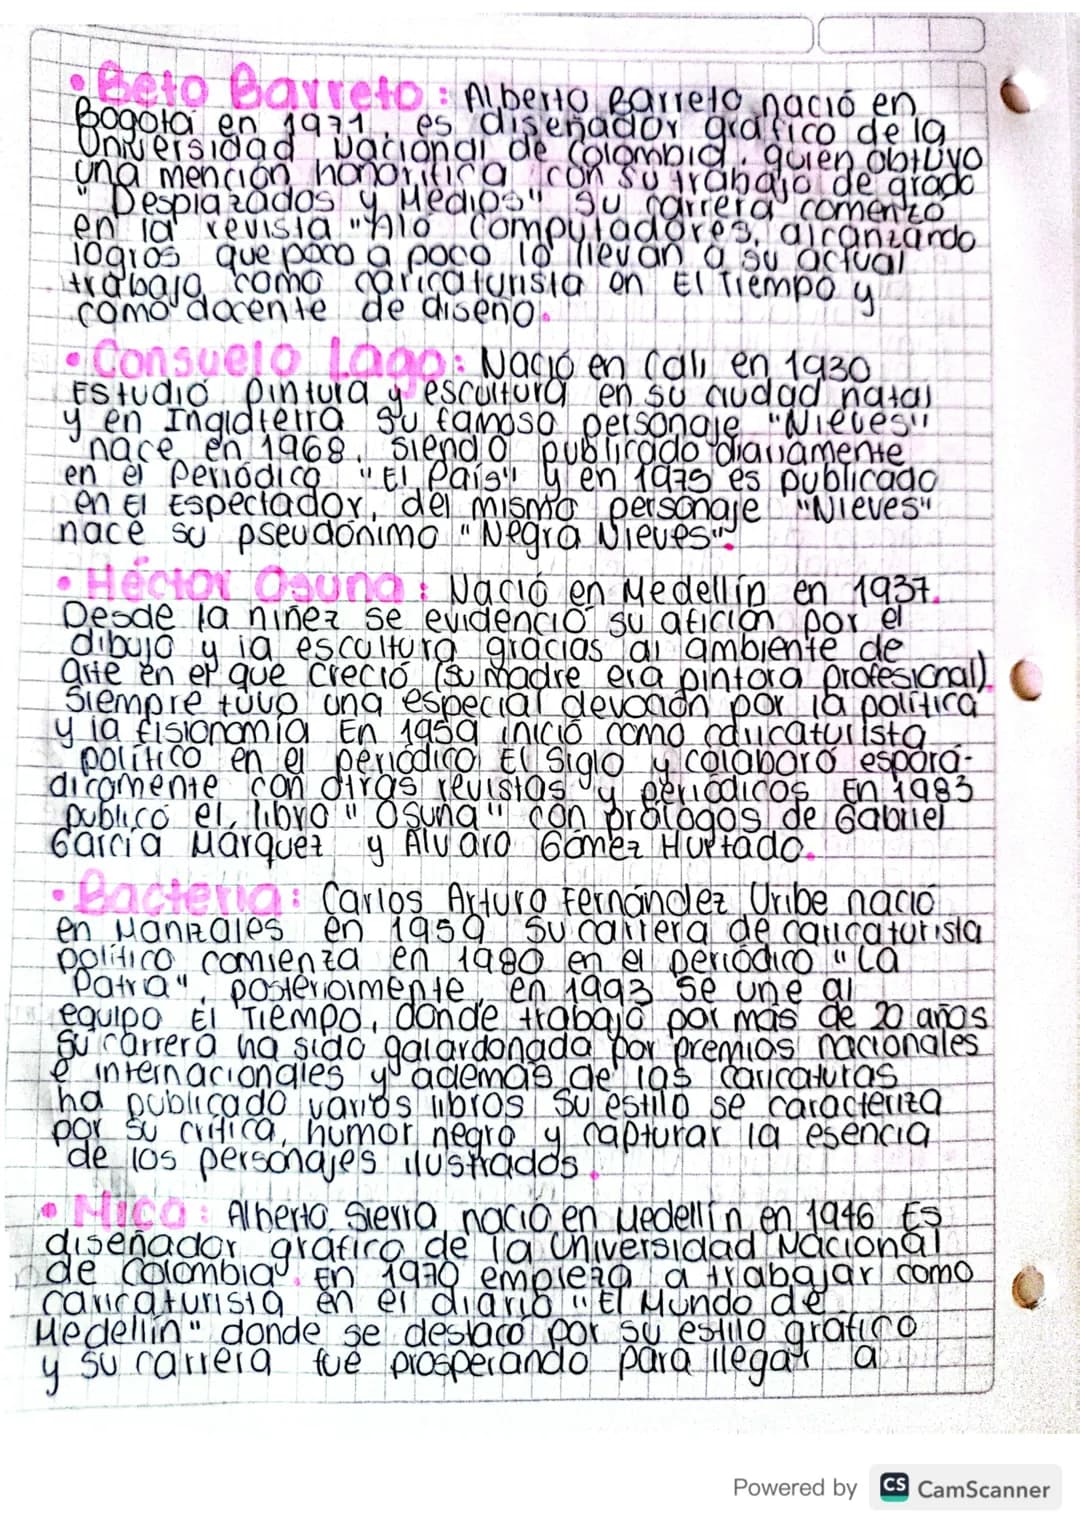 • Beto Barreto: Alberto Barreto nació en
Bogotá en 1971, es diseñador gráfico de la
Universidad Nacional de Colombia, quien obtuvo
una mención honorifica con su trabajo de grado
"Desplazados y Medios" su carrera comenzó
en la revista "Aló Computadores, alcanzando
logros que poco a poco lo llevan a su actual
trabajo como caricaturista en El Tiempo y
como docente de diseño.
• Consuelo Lago: Nació en Cali en 1930
Estudió pintura y escultura en su ciudad natal
y en Inglaterra su famoso personaje "Nieves"
nace en 1968, siendo publicado diariamente
en el periódico "El País" y en 1975 es publicado
en El Espectador, del mismo personaje "Nieves"
nace su pseudónimo "Negra Nieves".
• Héctor Osuna: Nació en Medellín en 1937.
Desde la niñez se evidenció su afición por el
dibujo y la escultura gracias al ambiente de
arte en el que creció (su madre era pintora profesional)
Siempre tuvo una especial devoción por la política
y la fisionomía En 1959 inició como caricaturista
político en el periódico El Siglo y colaboró espora-
dicamente con otras revistas y periódicos En 1983
publicó el libro "Osuna" con prólogos de Gabriel
García Márquez y Álvaro Gómez Hurtado.
• Bacteria: Carlos Arturo Fernández Uribe nació
en Manizales en 1959 Su carrera de caricaturista
político comienza en 1980 en el periódico "La
Patria", posteriormente, en 1993 se une al
equipo El Tiempo, donde trabajó por más de 20 años
Su carrera ha sido galardonada por premios nacionales
e internacionales y además de las caricaturas
ha publicado varios libros Su estilo se caracteriza
por su crítica, humor negro y capturar la esencia
de los personajes ilustrados.
• Mico: Alberto Sierra nació en Medellín en 1946 Es
diseñador gráfico de la Universidad Nacional
de Colombia. En 1970 empieza a trabajar como
caricaturista en el diario "El Mundo de
Medellín" donde se destacó por su estilo gráfico
y su carrera fue prosperando para llegar a
Powered by CS CamScanner